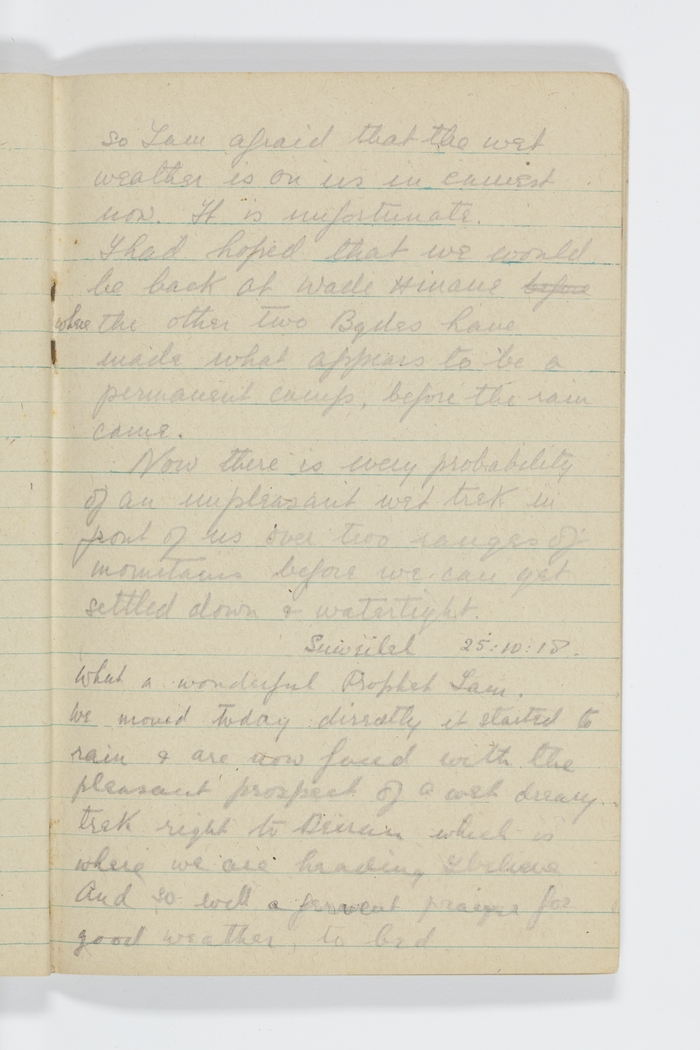 so I am afraid that the wet
weather is on us in earnest
now. It is unfortunate.
I had hoped that we would
be back at Wade Hinave before
where the other two Bgdes have
made what appears to be a
permanent camp, before the rain
came.
Now there is every probability
of an unpleasant wet trek in
front of us over two ranges of
mountains before we can get
settled down & watertight.
Suweileh 25:10:18.
What a wonderful Prophet I am.
We moved today directly it started to
rain & are now faced with the
pleasant prospect of a wet dreary
trek right to which is
where we are heading I believe
And so with a fervent prayer for
good weather, to bed